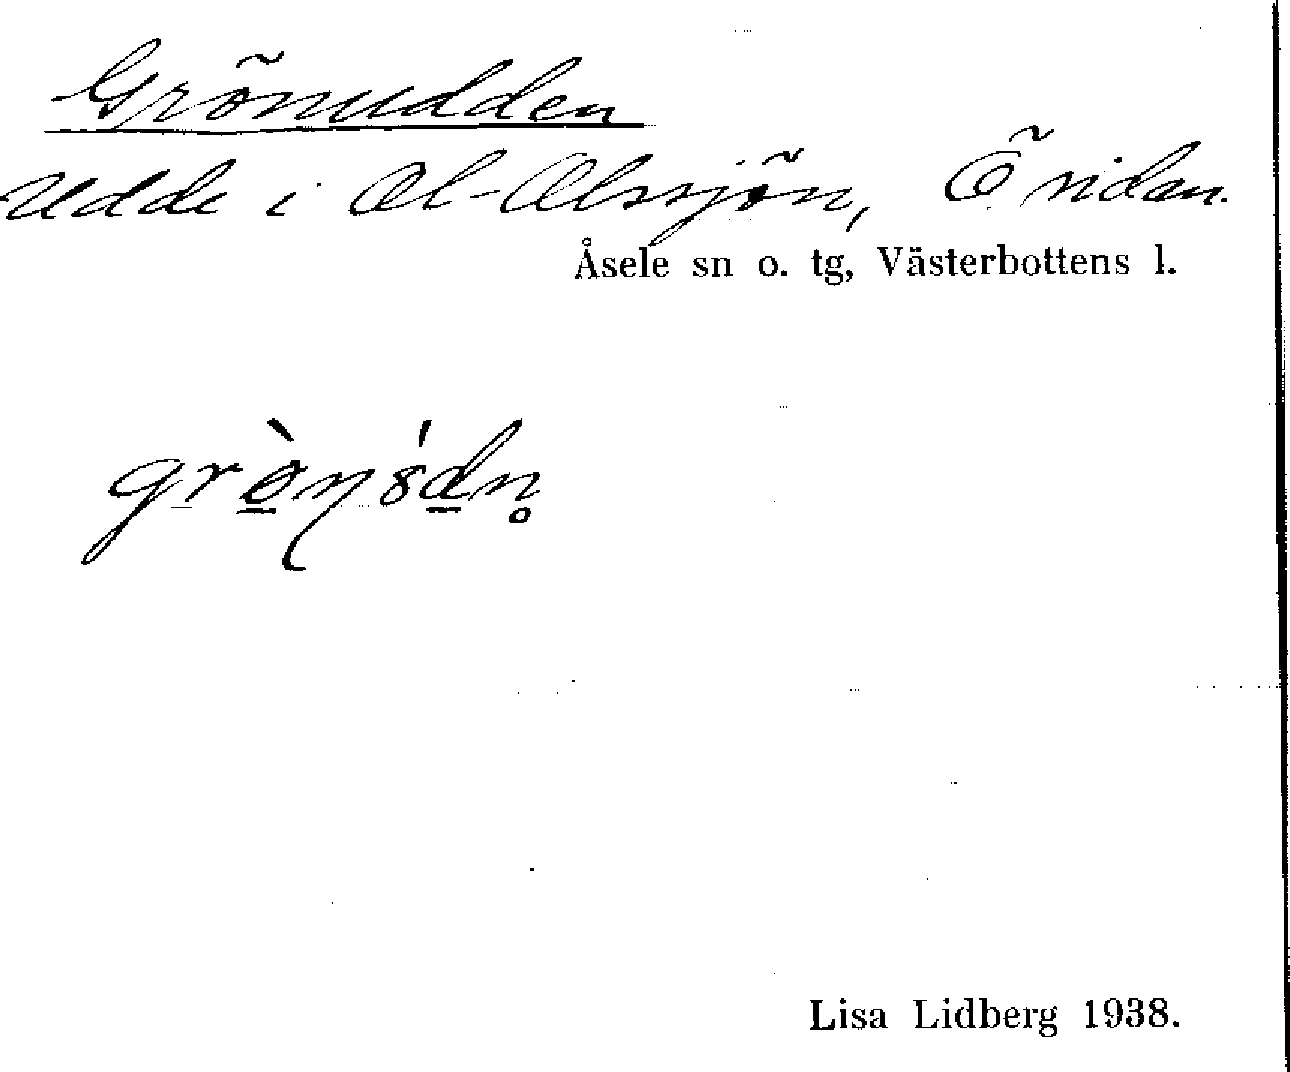 Grönudden
Udde i Ol-Olssjön, Ö nidan.
Åsele sn o. tg, Västerbottens l.
Lisa Lidberg 1938.